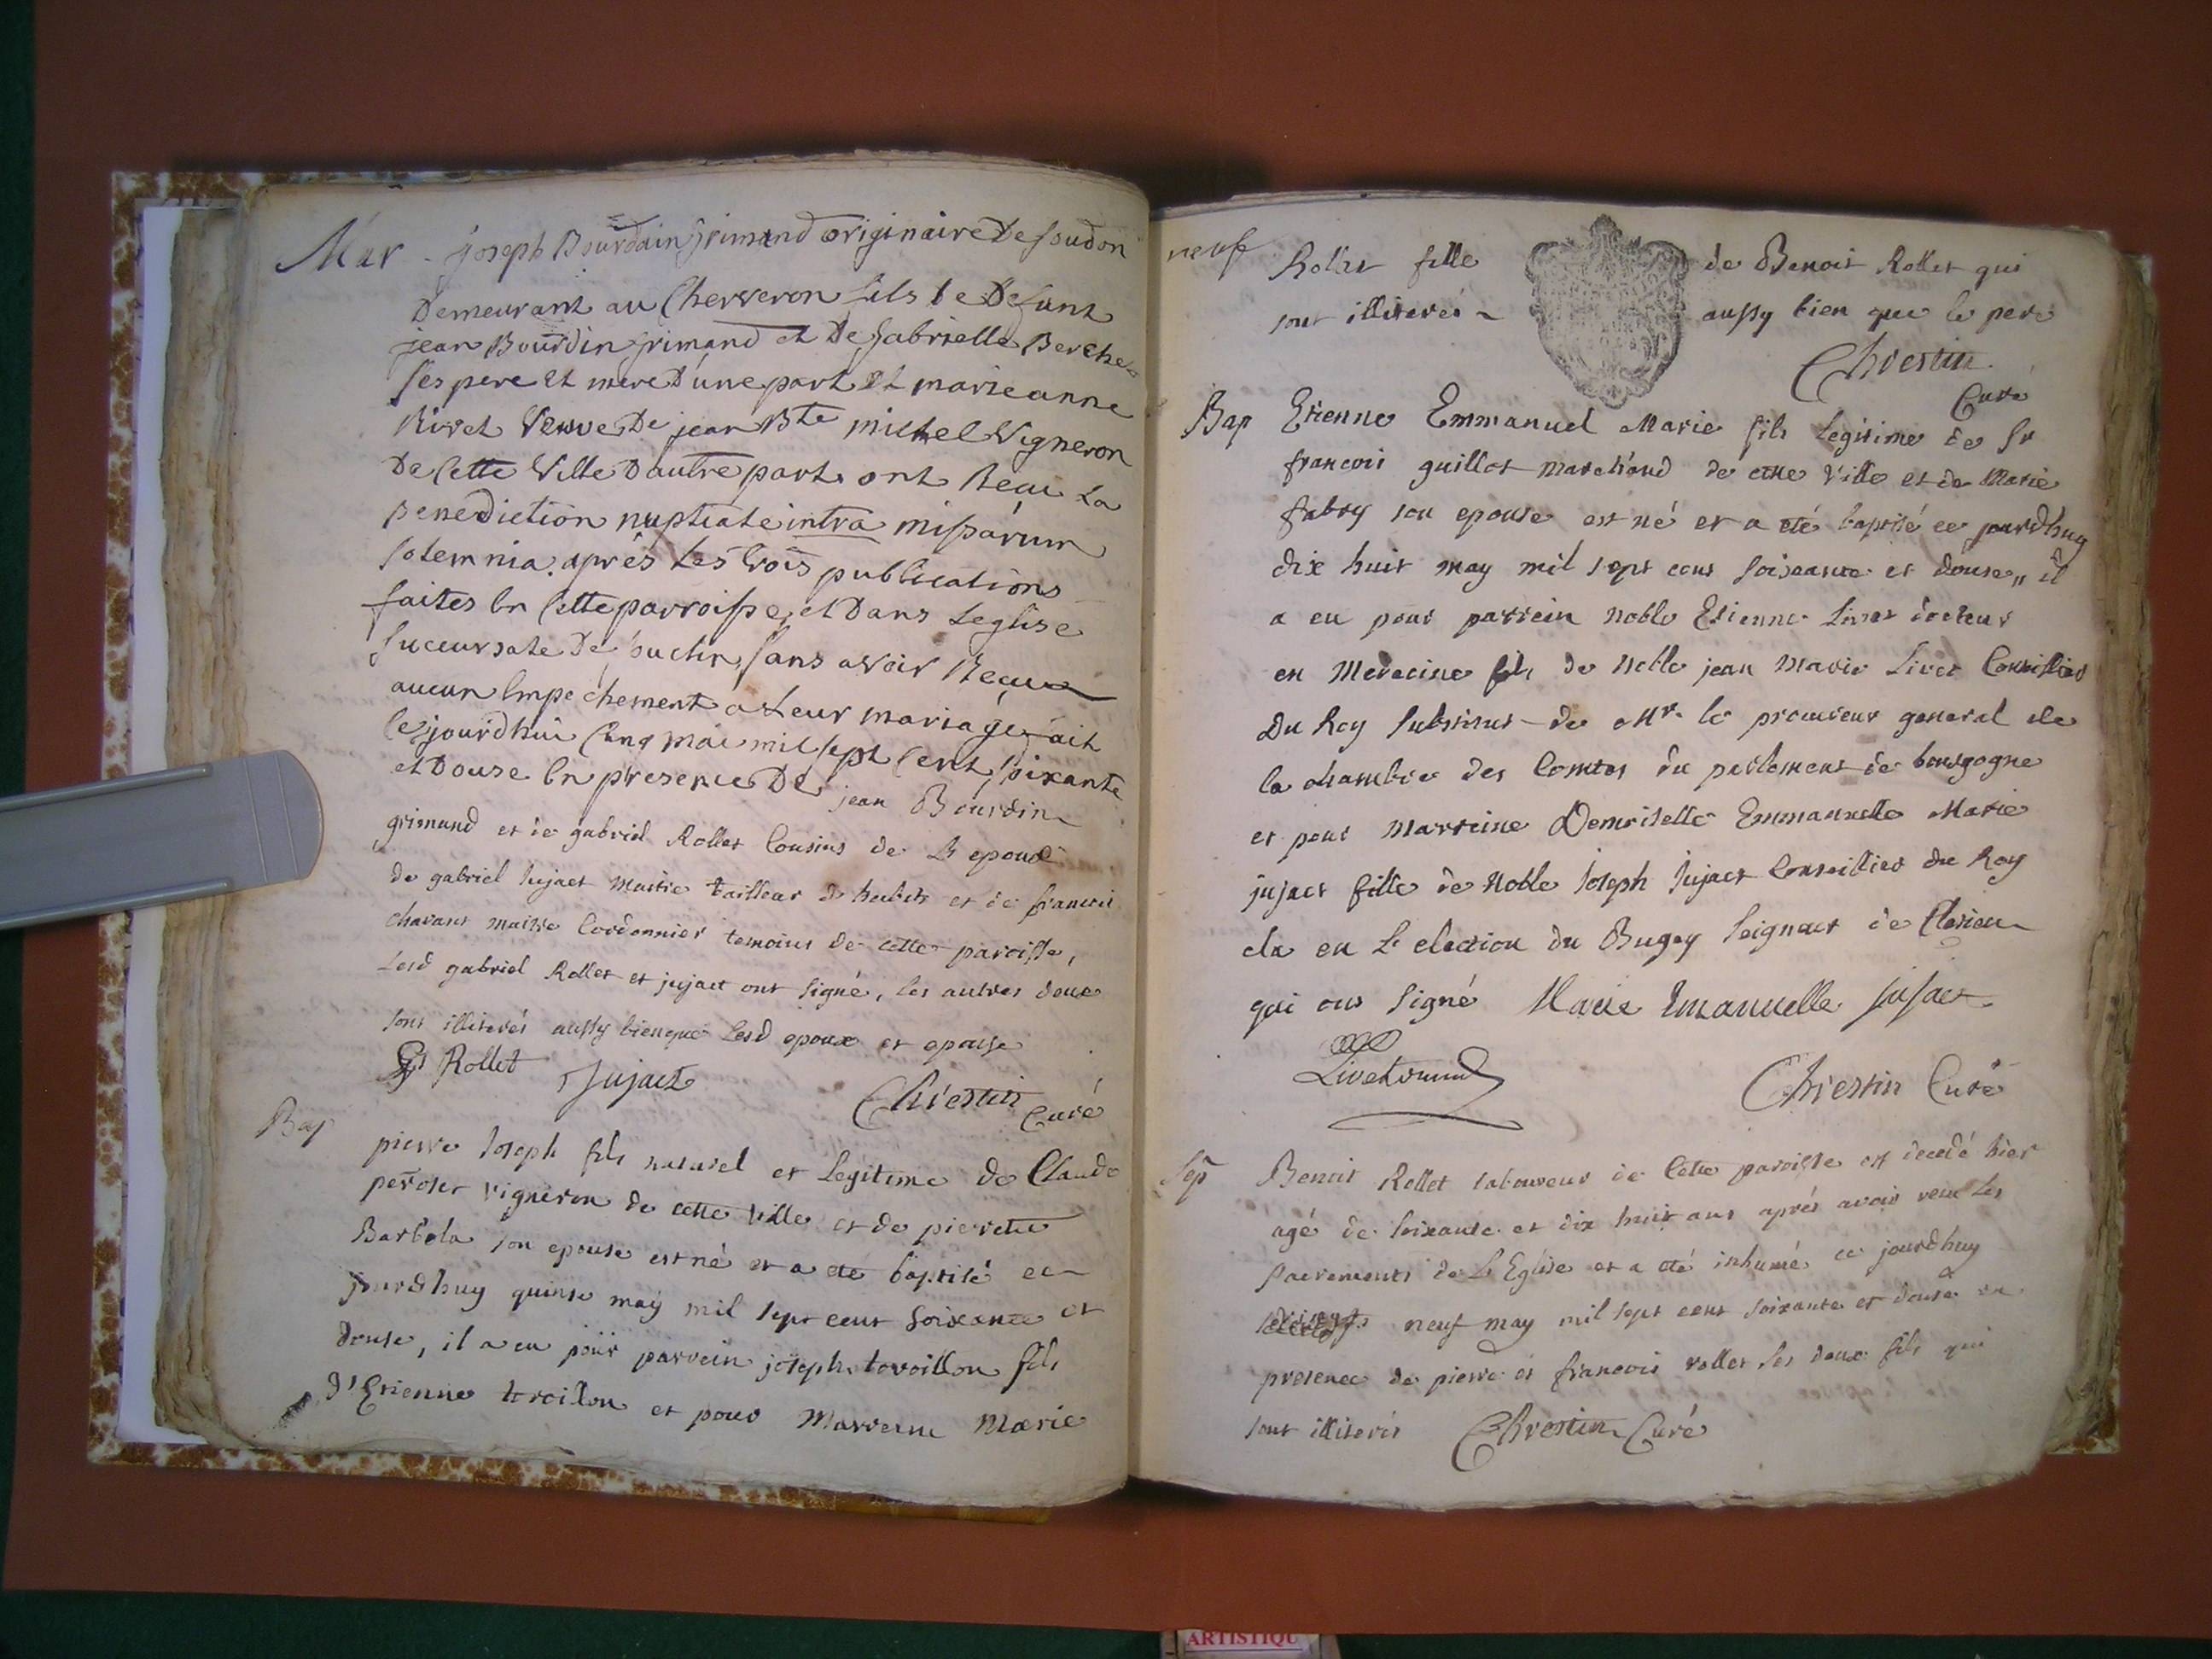 Mar joseph Bourdain grimand originaire De soudon
Demeurant au Cherveron fils de Defunt
jean Bourdin grimand et De gabrielle Berche
ses pere et mere D'une part et marie anne
Rivet Veuve De jean Bte michel Vigneron
De Cette Ville D'autre part, ont Reçu La
Benediction nuptiale intra missarum
solemnia, après Les trois publications
faites En Cette parroisse, et Dans Leglise
succursale De suctin, sans avoir Reçu
aucun Empechement a Leur mariage fait
Cejourd'hui Cinq mai mil sept Cent soixante
et Douse En presence De jean Bourdin
grimand et de gabriel Rollet Cousins de L'epoux
de gabriel jujact maitre tailleur d habits et de francois
chavant maitre Cordonnier temoins de cette paroisse,
Lesd gabriel Rollet et jujact ont signé, les autres deux
sont illiterés aussy bien que Lesd epoux et epouse
Gl Rollet Jujact
Chrestin Curé
Bap pierre Joseph fils naturel et Legitime de Claude
peroset vigneron de cette ville et de pierrette
Barbola son epouse est né et a eté baptisé ce
jourdhuy quinse may mil sept cent soixante et
douse, il a eu pour parrein joseph tovoillon fils
d'Etienne troillon et pour Marreine Marie
neuf
Rollet fille de Benoit Rollet qui
sont illiterés aussy bien que le pere
Chrestin
Curé
Bap Etienne Emmanuel Marie fils Legitime de Sr
francois guillot marchand de cette Ville et de Marie
fabry son epouse est né et a eté baptisé ce jourdhuy
dix huit may mil sept cent soixante et douse,, il
a eu pour parrein noble Etienne Livet docteur
en Medecine fils de Noble jean Marie Livet Conseillier
Du Roy substitut de Mr. le procureur general de
la chambre des Comtes du parlement de bourgogne
et pour Marreine Demoiselle Emmanuelle Marie
jujact fille de Noble Joseph Jujact Conseillier du Roy
elu en L'election du Bugey seigneur de
qui ont signé Marie Emanuelle jujact
Livet
Chrestin Curé
Sep Benoit Rollet laboureur de Cette paroisse est decedé hier
agé de soixante et dix huit ans aprés avoir reçu Les
sacrements de L'Eglise et a eté inhumé ce jourdhuy
neuf may mil sept cent soixante et douse en
presence de pierre et francois rollet ses deux fils qui
sont illiterés Chrestin Curé
ARTISTIQU